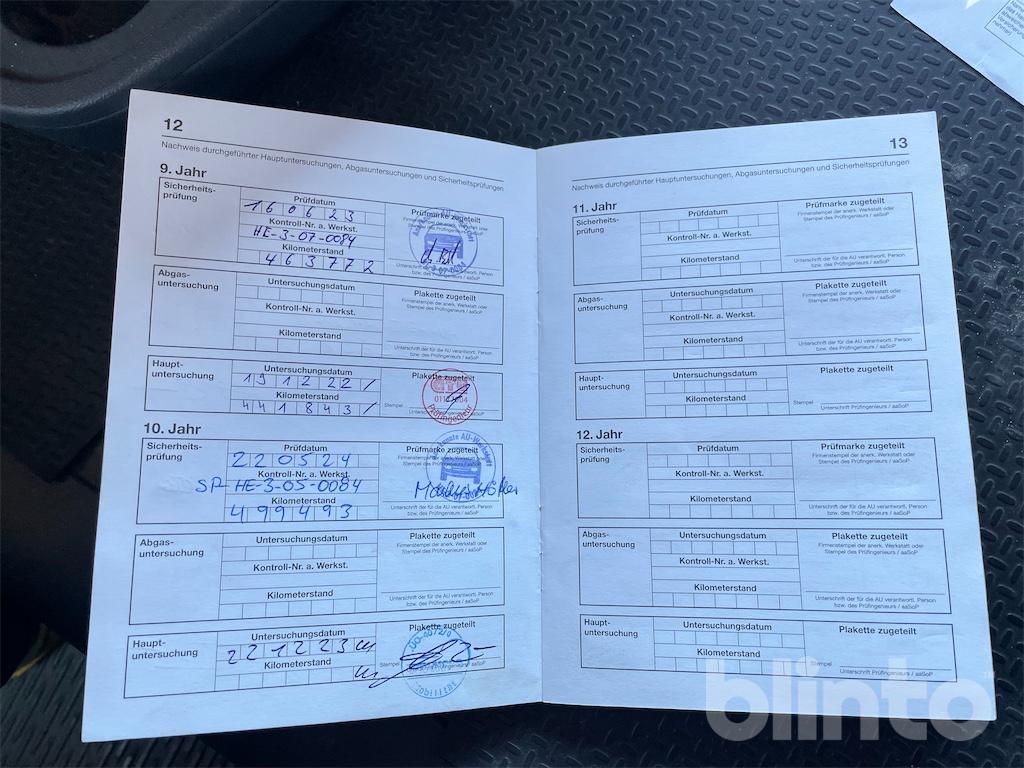 12
Nachweis durchgeführter Hauptuntersuchungen, Abgasuntersuchungen und Sicherheitsprüfungen
9. Jahr
Sicherheits-
prüfung
Prüfdatum
160623
Kontroll-Nr. a. Werkst.
HE-3-07-0084
Kilometerstand
463772
Prüfmarke zugeteilt
Firmenstempel der anerk. Werkstatt oder
Unterschrift der für die AU verantwortl. Person
bzw. des Prüfingenieurs / aaSoP
Abgas-
untersuchung
Untersuchungsdatum
Kontroll-Nr. a. Werkst.
Kilometerstand
Plakette zugeteilt
Firmenstempel der anerk. Werkstatt oder
Stempel des Prüfingenieurs / aaSoP
Unterschrift der für die AU verantwortl. Person
bzw. des Prüfingenieurs / aaSoP
Haupt-
untersuchung
Untersuchungsdatum
191222/
Kilometerstand
441843/
Plakette zugeteilt
Stempel
Unterschrift Prüfingenieur / aaSoP
Prüfingenieur
10. Jahr
Sicherheits-
prüfung
Prüfdatum
220524
Kontroll-Nr. a. Werkst.
SP-HE-3-05-0084
Kilometerstand
499493
Prüfmarke zugeteilt
Firmenstempel der anerk. Werkstatt oder
Stempel des Prüfingenieurs / aaSoP
Unterschrift der für die AU verantwortl. Person
bzw. des Prüfingenieurs / aaSoP
Abgas-
untersuchung
Untersuchungsdatum
Kontroll-Nr. a. Werkst.
Kilometerstand
Plakette zugeteilt
Firmenstempel der anerk. Werkstatt oder
Stempel des Prüfingenieurs / aaSoP
Unterschrift der für die AU verantwortl. Person
bzw. des Prüfingenieurs / aaSoP
Haupt-
untersuchung
Untersuchungsdatum
221223
Kilometerstand
Plakette zugeteilt
Stempel
Unterschrift Prüfingenieur / aaSoP
13
Nachweis durchgeführter Hauptuntersuchungen, Abgasuntersuchungen und Sicherheitsprüfungen
11. Jahr
Sicherheits-
prüfung
Prüfdatum
Kontroll-Nr. a. Werkst.
Kilometerstand
Prüfmarke zugeteilt
Firmenstempel der anerk. Werkstatt oder
Stempel des Prüfingenieurs / aaSoP
Unterschrift der für die AU verantwortl. Person
bzw. des Prüfingenieurs / aaSoP
Abgas-
untersuchung
Untersuchungsdatum
Kontroll-Nr. a. Werkst.
Kilometerstand
Plakette zugeteilt
Firmenstempel der anerk. Werkstatt oder
Stempel des Prüfingenieurs / aaSoP
Unterschrift der für die AU verantwortl. Person
bzw. des Prüfingenieurs / aaSoP
Haupt-
untersuchung
Untersuchungsdatum
Kilometerstand
Plakette zugeteilt
Stempel
Unterschrift Prüfingenieur / aaSoP
12. Jahr
Sicherheits-
prüfung
Prüfdatum
Kontroll-Nr. a. Werkst.
Kilometerstand
Prüfmarke zugeteilt
Firmenstempel der anerk. Werkstatt oder
Stempel des Prüfingenieurs / aaSoP
Unterschrift der für die AU verantwortl. Person
bzw. des Prüfingenieurs / aaSoP
Abgas-
untersuchung
Untersuchungsdatum
Kontroll-Nr. a. Werkst.
Kilometerstand
Plakette zugeteilt
Firmenstempel der anerk. Werkstatt oder
Stempel des Prüfingenieurs / aaSoP
Unterschrift der für die AU verantwortl. Person
bzw. des Prüfingenieurs / aaSoP
Haupt-
untersuchung
Untersuchungsdatum
Kilometerstand
Plakette zugeteilt
Stempel
Unterschrift Prüfingenieur / aaSoP
blinto